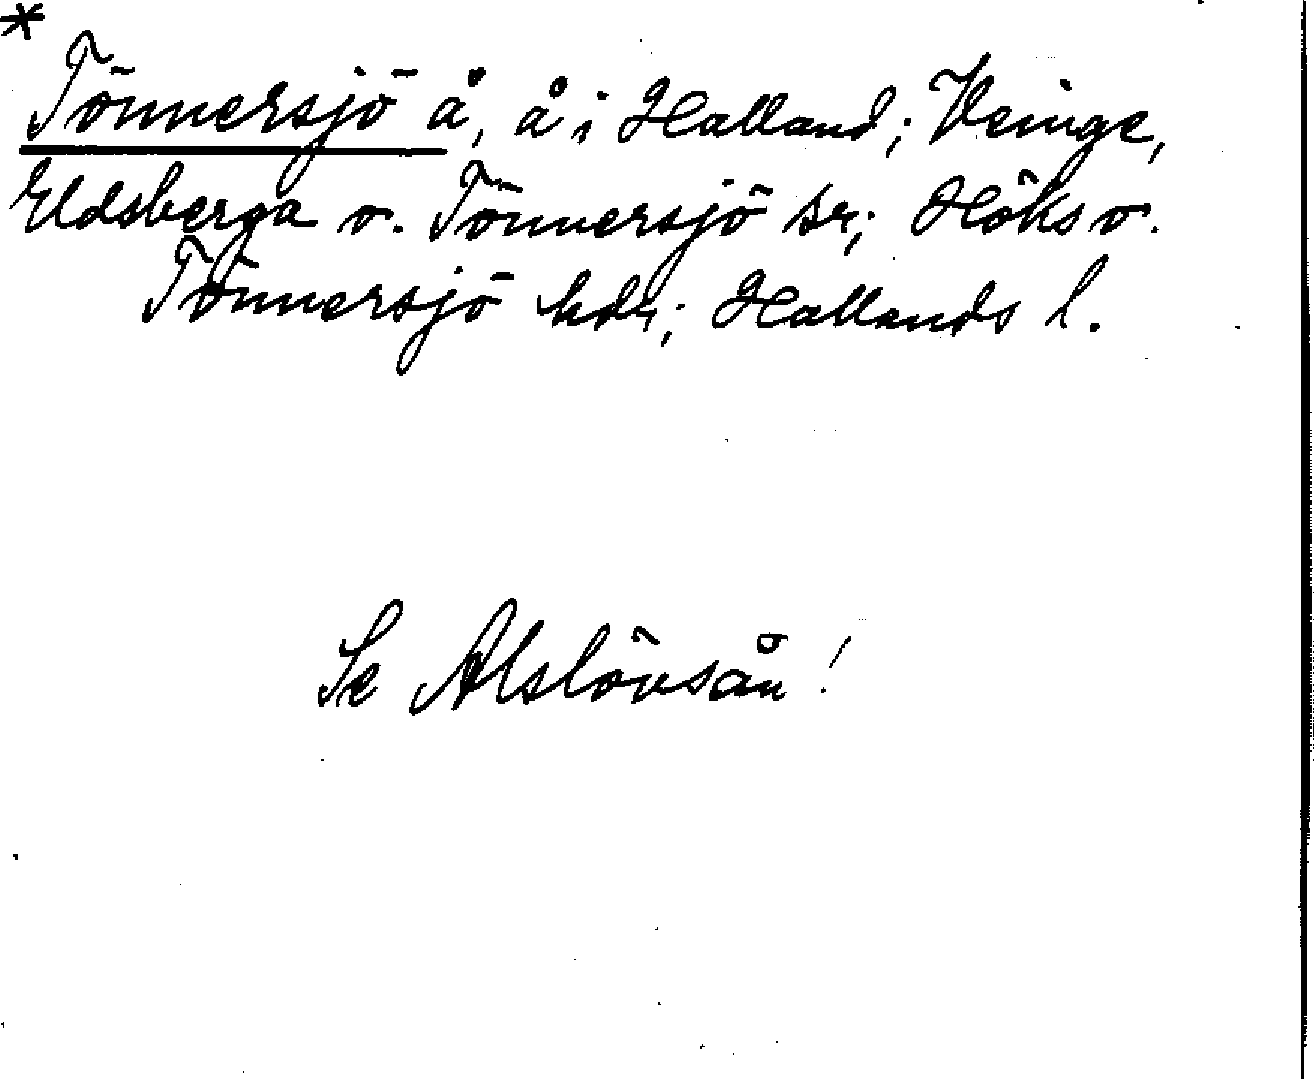 *
Tönnersjö å, å i Halland; Veinge,
Eldsberga o. Tönnersjö sr; Höks o.
Tönnersjö hdr; Hallands l.
Se Alslövsån!